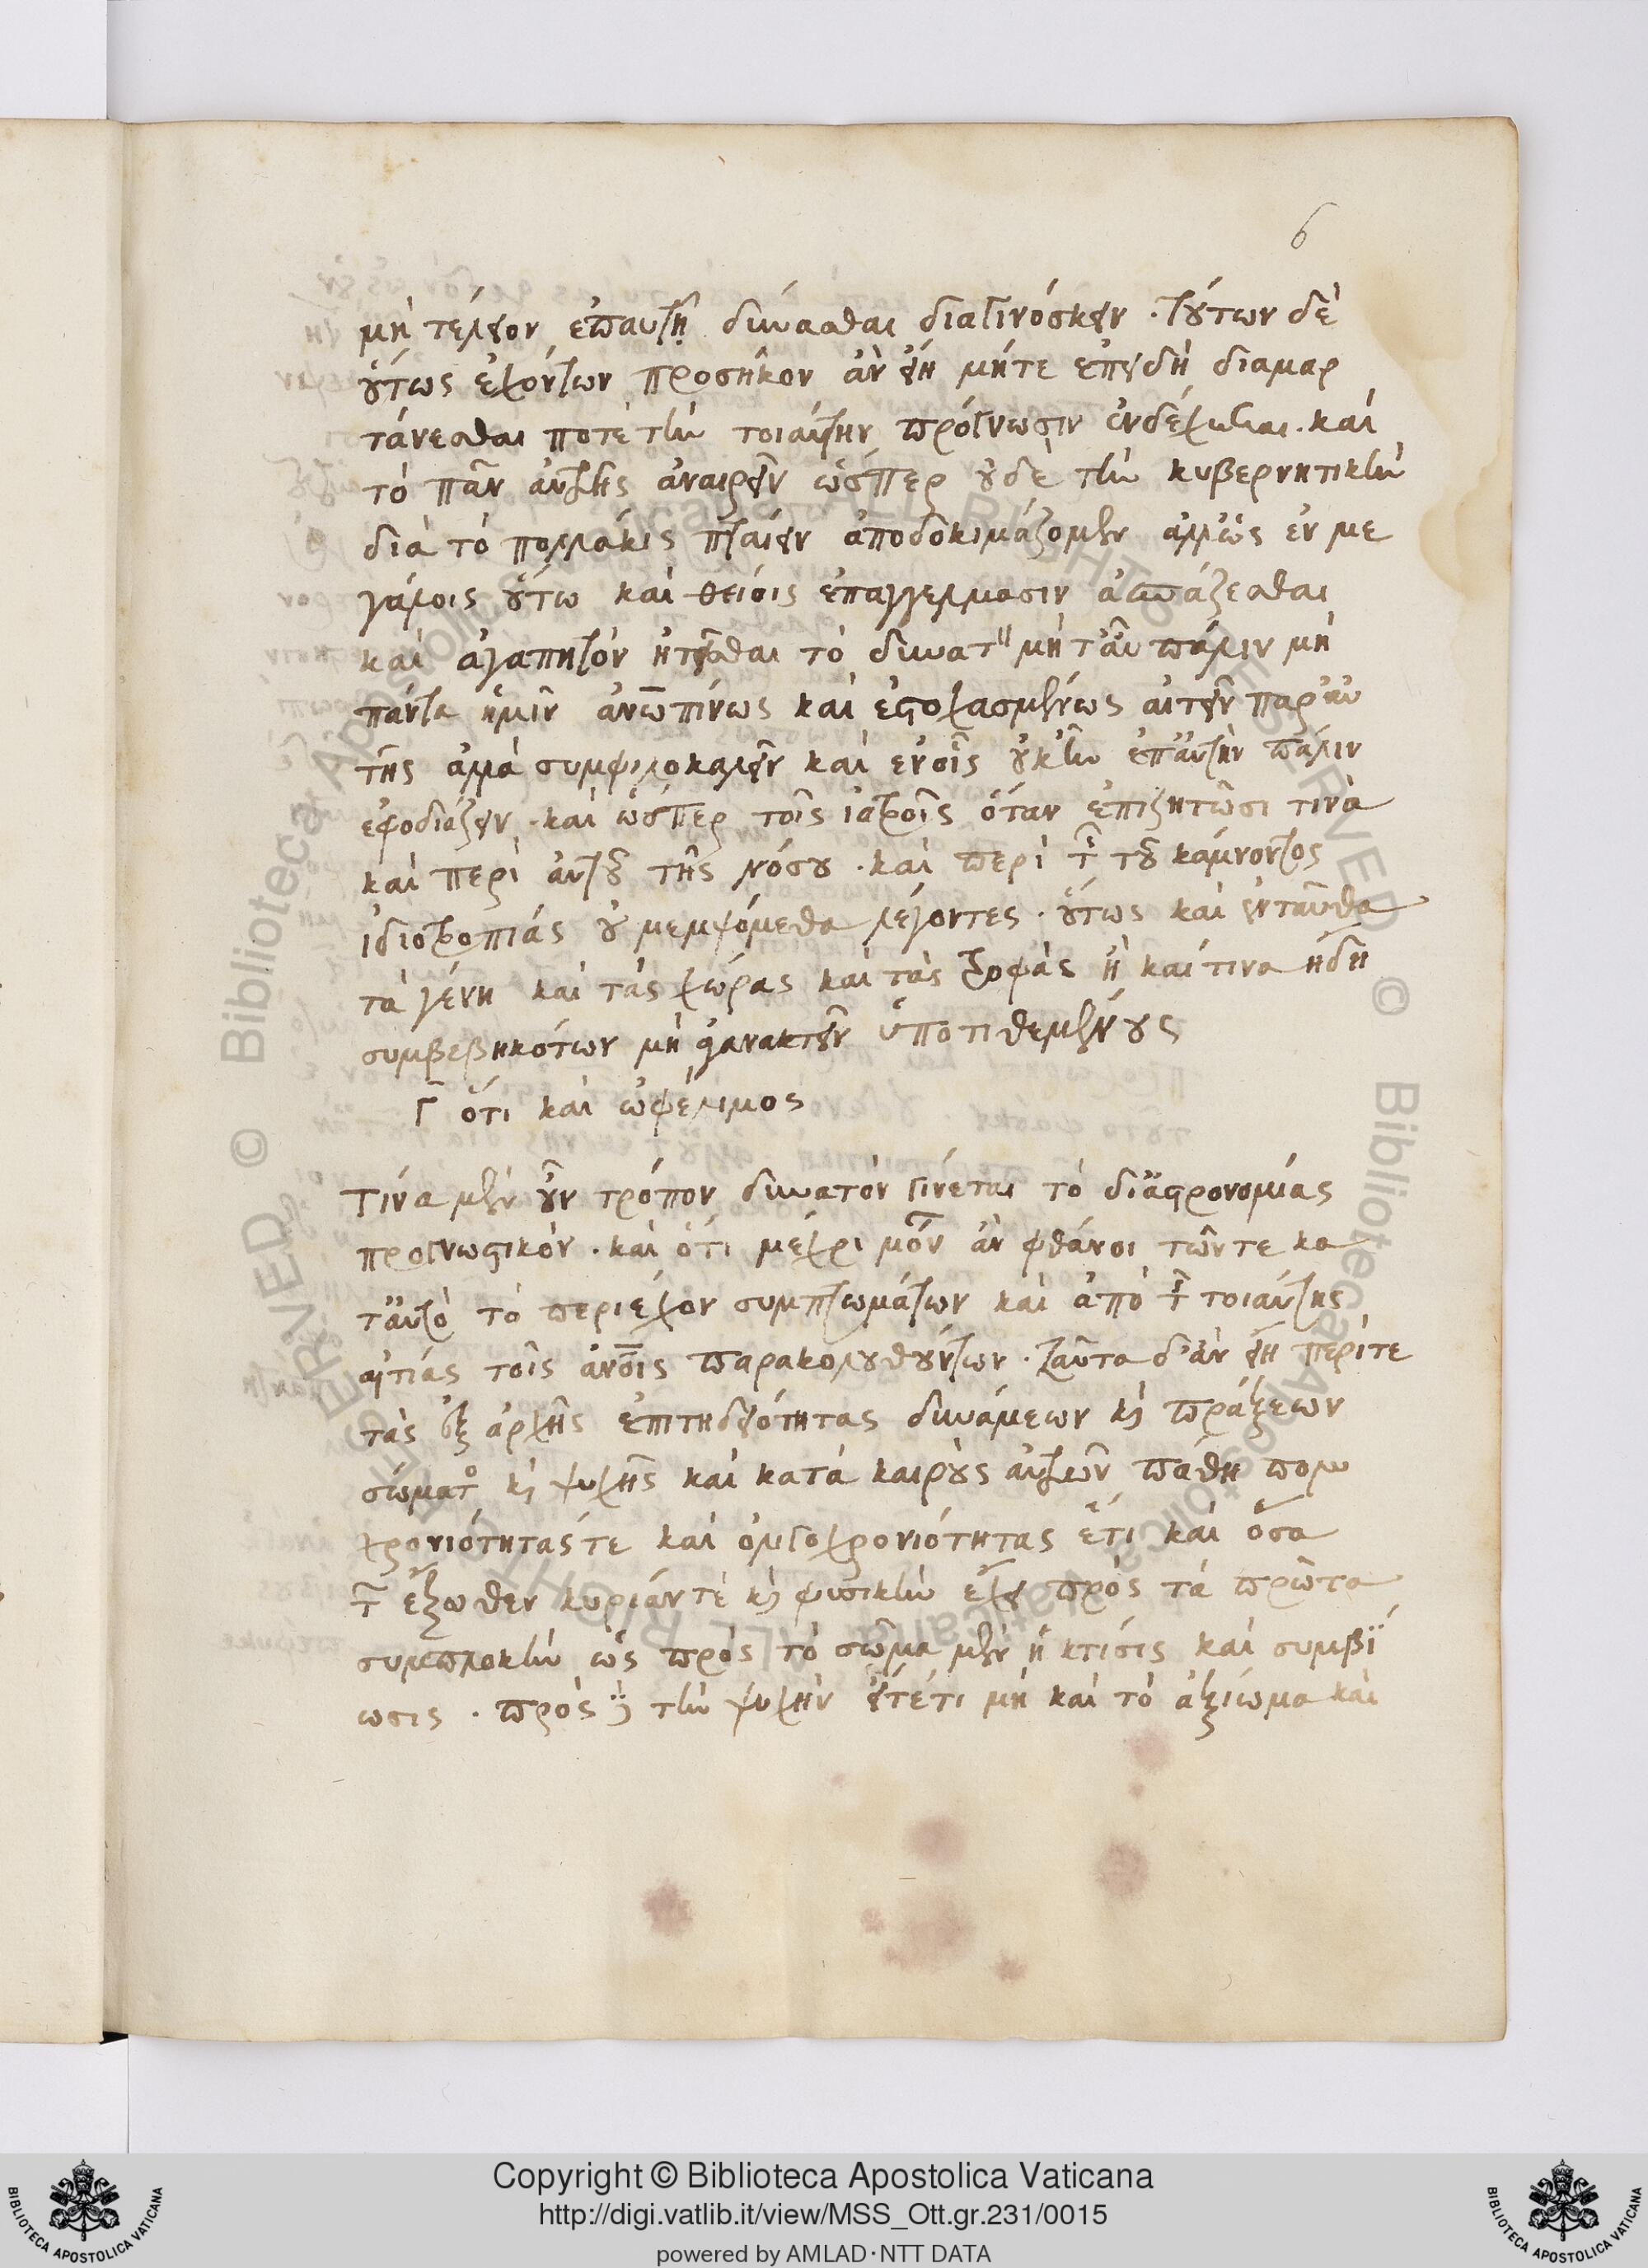 6
μὴ τέλειον ἐπαυτῇ δύνασθαι διαγινόσκειν . τούτων δὲ
οὕτως ἐχόντων προσῆκον ἂν εἴη μήτε ἐπειδὴ διαμαρ
τάνεσθαι ποτὲ τὴν τοιαύτην πρόγνωσιν ἐνδέχεται . καὶ
τὸ πᾶν αὐτῆς ἀναιρεῖν ὥσπερ οὐδὲ τὴν κυβερνητικὴν
διὰ τὸ πολλάκις πταίειν ἀποδοκιμάζομεν ἀλλ' ὡς ἐν με
γάλοις οὕτω καὶ θείοις ἐπαγγέλμασιν ἀσπάζεσθαι
καὶ ἀγαπητὸν ἡγεῖσθαι τὸ δυνατ μὴ τ' αὖ πάλιν μὴ
πάντα ἡμῖν ἀνωπίνως καὶ ἐστοχασμένως αἰτεῖν παρ' αὐ
τῆς ἀλλὰ συμφιλοκαλεῖν καὶ ἐν οἷς οὐκ ἦν ἐπ' αὐτὴν πάλιν
ἐφοδιάζειν . καὶ ὥσπερ τοῖς ἰατροῖς ὅταν ἐπιζητῶσι τινὰ
καὶ περὶ αὐτοῦ τῆς νόσου . καὶ περὶ τ τοῦ κάμνοντος
ἰδιοτροπίας οὐ μεμψόμεθα λέγοντες . οὕτως καὶ ἐνταῦθα
τὰ γένη καὶ τὰς χώρας καὶ τὰς τροφὰς ἢ καί τινα ἤδη
συμβεβηκότων μὴ ἀγανακτεῖν ὑποτιθεμένους
Γ ὅτι καὶ ὠφέλιμος
Τίνα μὲν οὖν τρόπον δυνατὸν γίνεται τὸ δι' ἀστρονομίας
προγνωστικόν . καὶ ὅτι μέχρι μόν ἂν φθάνοι τῶν τε κα
τ' αὐτὸ τὸ περιέχον συμπτωμάτων καὶ ἀπὸ τ τοιαύτης
αἰτίας τοῖς ἀνοις παρακολουθούντων . ταῦτα δ' ἂν εἴη περί τε
τὰς ἐξ ἀρχῆς ἐπιτηδειότητας δυνάμεων κ πράξεων
σώματ κ ψυχῆς καὶ κατὰ καιροὺς αὐτῶν πάθη πολυ
χρονιότητάς τε καὶ ὀλιγοχρονιότητας ἔτι καὶ ὅσα
τ ἔξωθεν κυρίαν τὲ κ φυσικὴν ἔχει πρὸς τὰ πρῶτα
συμπλοκὴν ὡς πρὸς τὸ σῶμα μὲν ἡ κτίσις καὶ συμβί
ωσις . πρὸς τὴν ψυχὴν μὴ καὶ τὸ ἀξίωμα καὶ
Copyright © Biblioteca Apostolica Vaticana
http://digi.vatlib.it/view/MSS_Ott.gr.231/0015
powered by AMLAD·NTT DATA